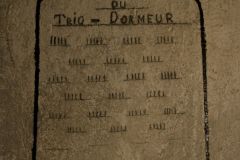 OU
TRIO - DORMEUR